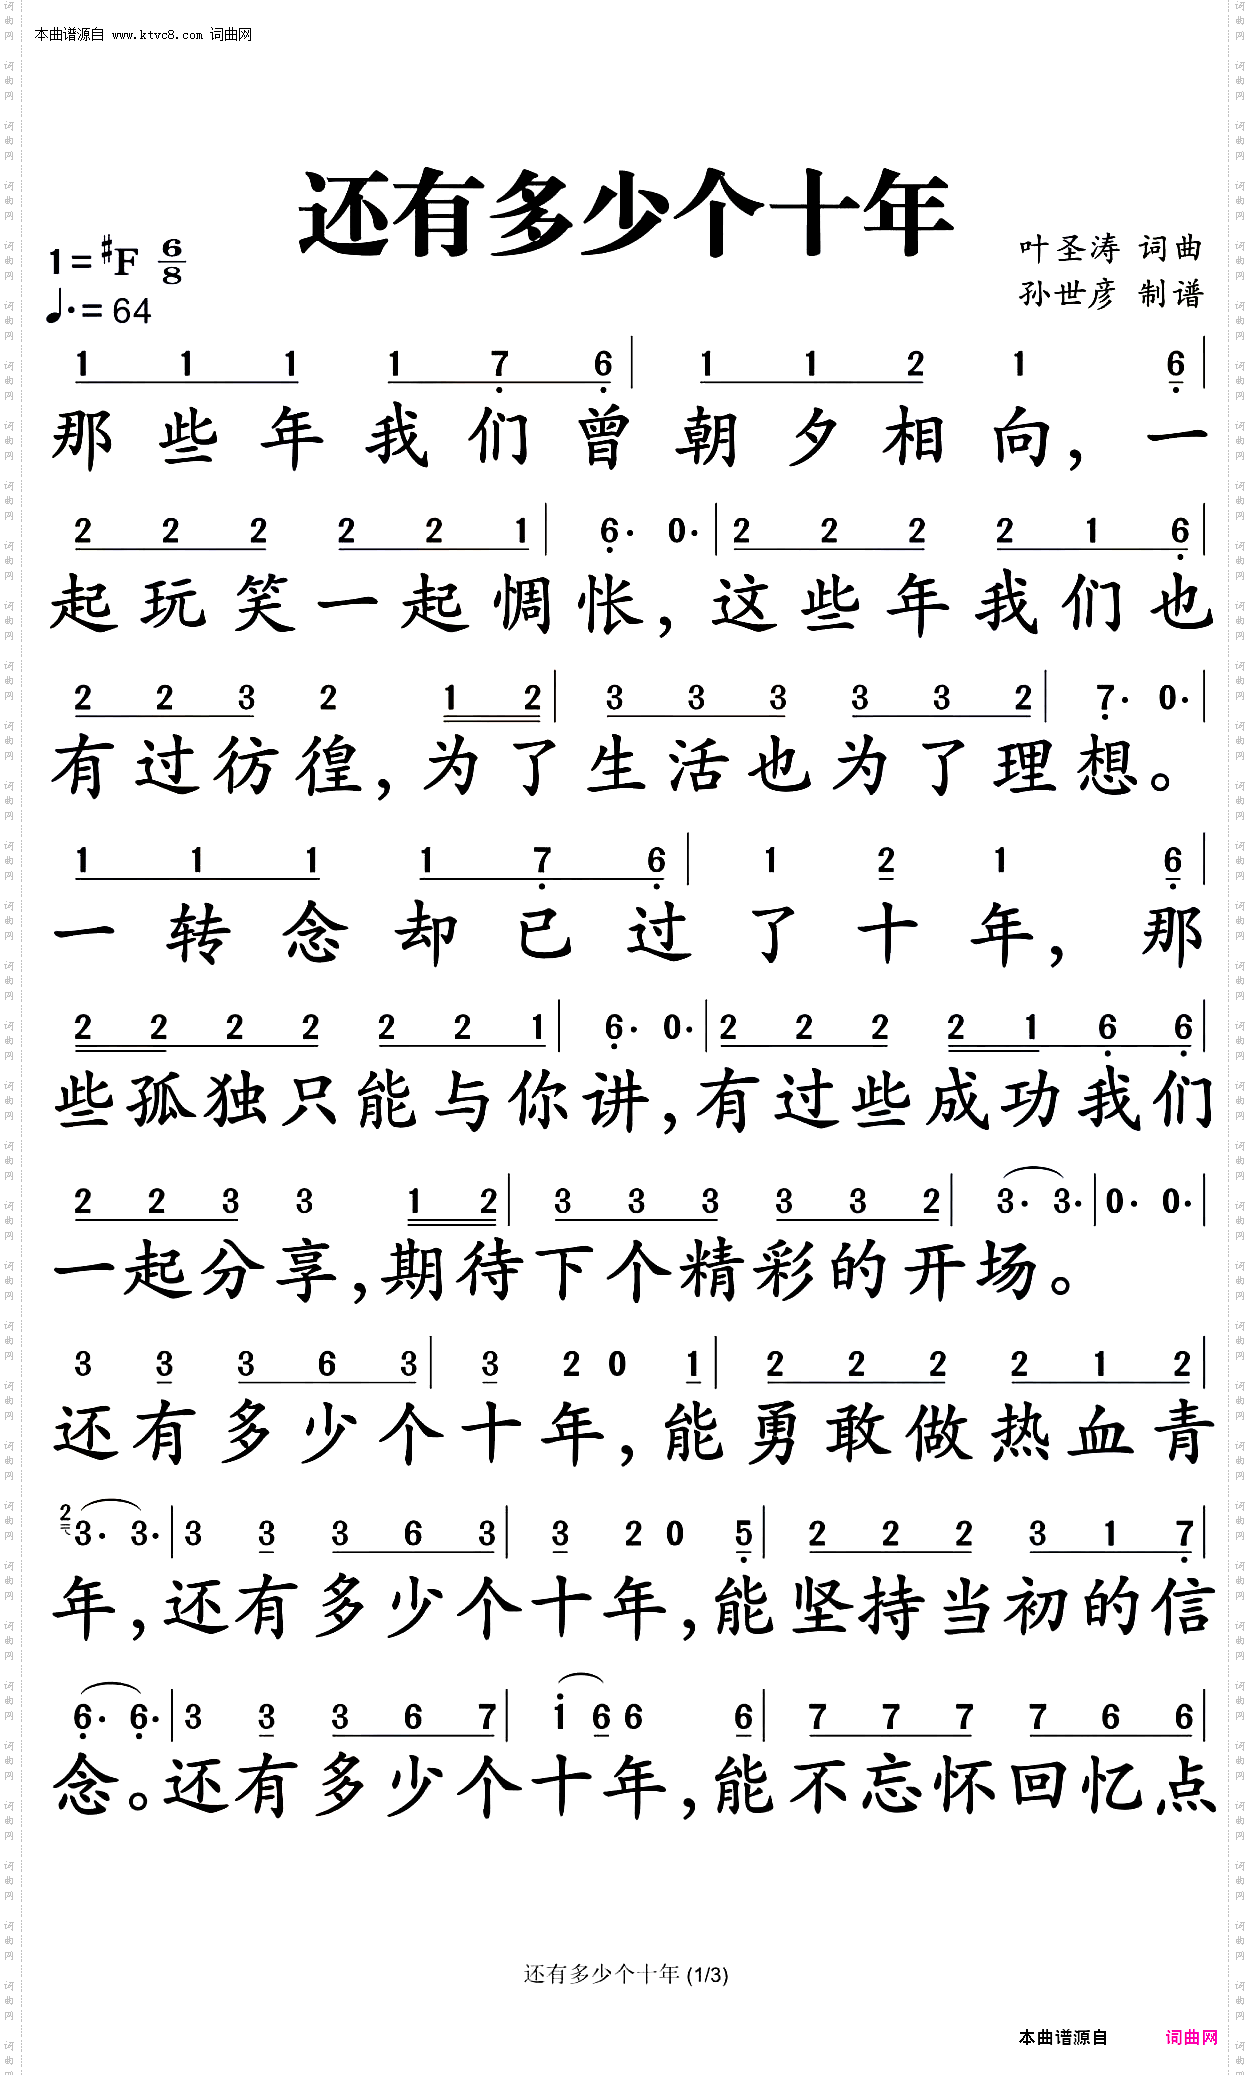 本曲谱源自 www.ktvc8.com 词曲网
还有多少个十年
1=#F 6/8
叶圣涛 词曲
♩.=64
孙世彦 制谱
1 1 1 1 7 6 | 1 1 2 1 6 |
那些年我们曾朝夕相向,一
2 2 2 2 2 1 | 6· 0· | 2 2 2 2 1 6 |
起玩笑一起惆怅,这些年我们也
2 2 3 2 1 2 | 3 3 3 3 3 2 | 7· 0· |
有过彷徨,为了生活也为了理想。
1 1 1 1 7 6 | 1 2 1 6 |
一转念却已过了十年,那
2 2 2 2 2 2 1 | 6· 0· | 2 2 2 2 1 6 6 |
些孤独只能与你讲,有过些成功我们
2 2 3 3 1 2 | 3 3 3 3 3 2 | 3· 3· | 0· 0· |
一起分享,期待下个精彩的开场。
3 3 3 6 3 | 3 2 0 1 | 2 2 2 2 1 2 |
还有多少个十年,能勇敢做热血青
2 3· 3· | 3 3 3 6 3 | 3 2 0 5 | 2 2 2 3 1 7 |
年,还有多少个十年,能坚持当初的信
6· 6· | 3 3 3 6 7 | i 6 6 6 | 7 7 7 7 6 6 |
念。还有多少个十年,能不忘怀回忆点
还有多少个十年 (1/3)
本曲谱源自 词曲网